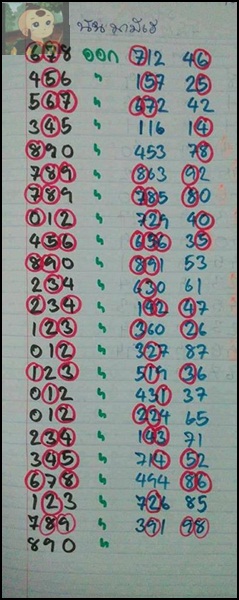 678 ออก 712 46
456 " 157 25
567 " 672 42
345 " 116 14
890 " 453 78
789 " 863 92
789 " 785 80
012 " 729 40
456 " 656 35
890 " 891 53
234 " 630 61
234 " 192 47
123 " 360 26
012 " 327 87
123 " 519 36
012 " 431 37
012 " 224 65
234 " 143 71
345 " 714 52
678 " 494 86
123 " 726 85
789 " 391 98
890 "